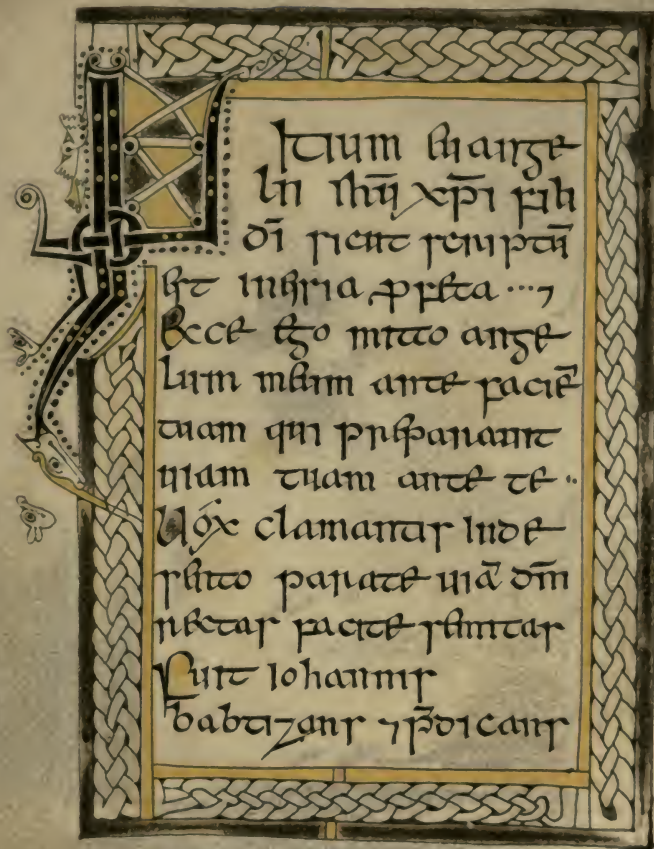 INitium euange
lii ihū xp̄i filii
dī sicut scriptū
est in esaia ꝓfeta ...⁊
Ecce ego mitto ange
lum meum ante faciē
tuam qui preparauit
uiam tuam ante te ..
Uóx clamantis inde
serto parate uiā dm̄
rectas facite semitas
Fuit iohannis
babtizans ⁊ p̄dicans